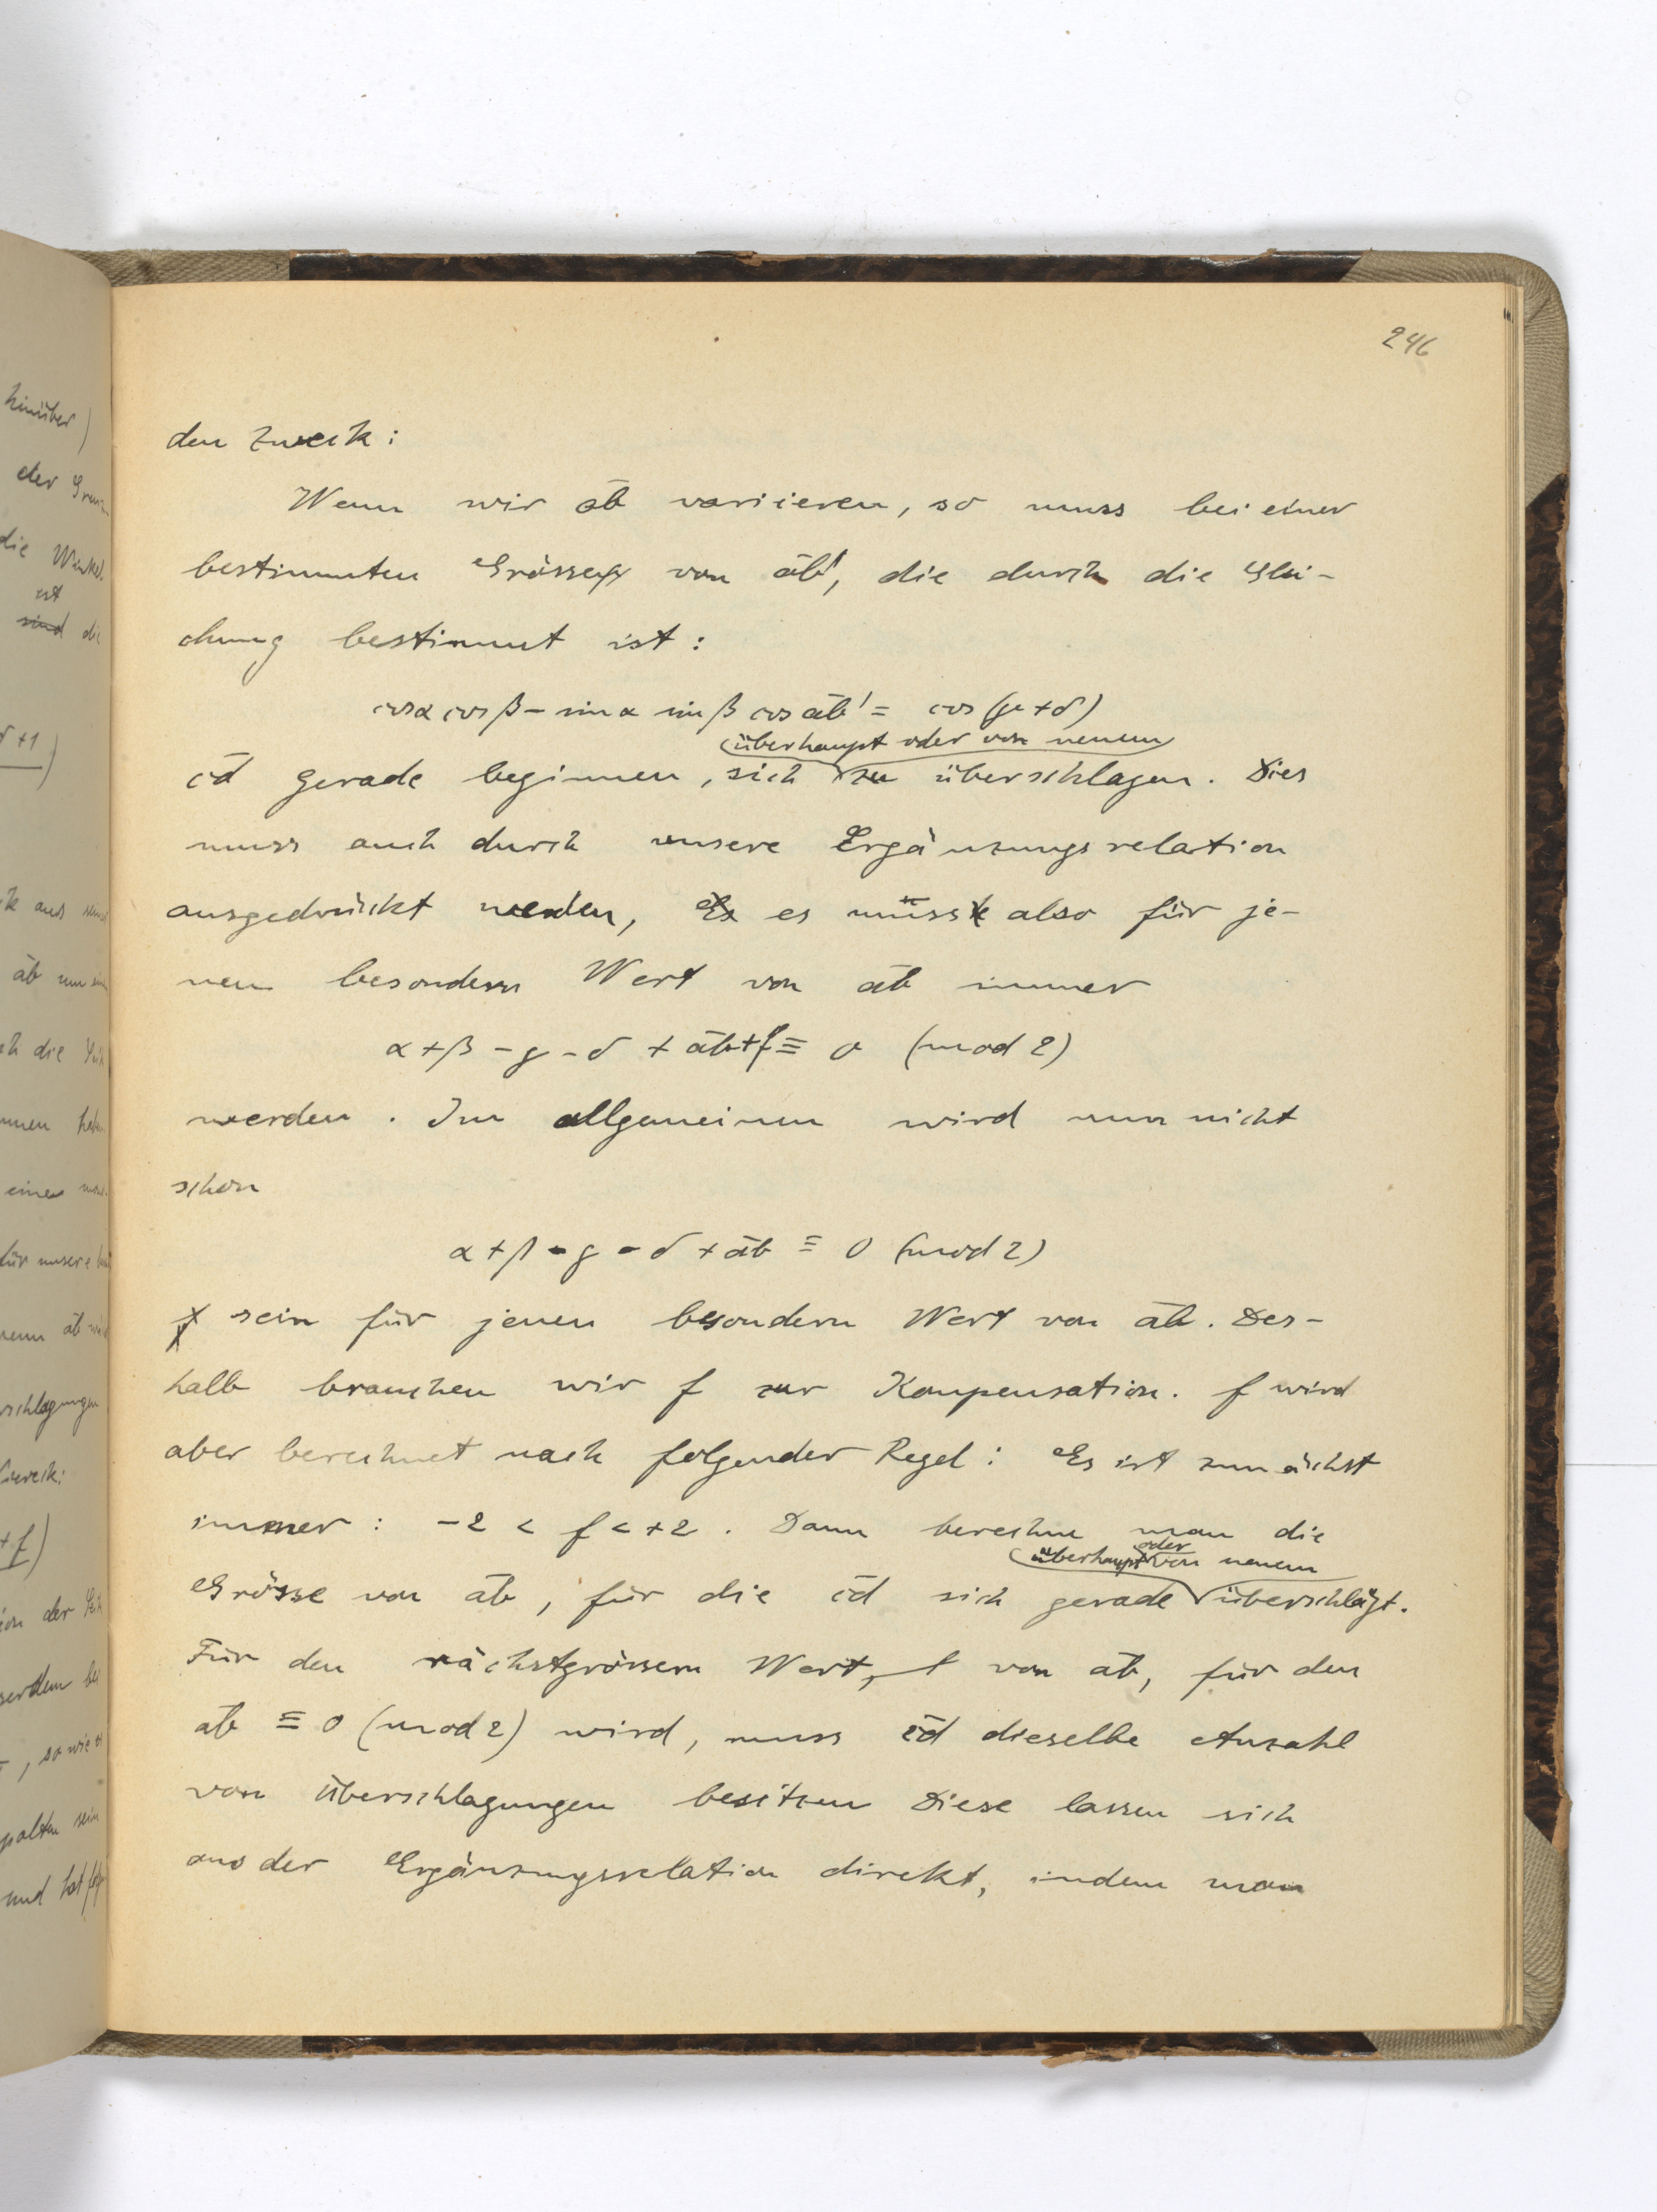 246
den Zweck:
Wenn wir āb variieren, so muss bei einer
bestimmten Grösse von āb', die durch die Glei-
chung bestimmt ist:
cosα cosβ - sinα sinβ cos āb' = cos(γ+δ)
überhaupt oder von neuem
c̄d gerade beginnen, sich zu überschlagen. Dies
muss auch durch unsere Ergänzungsrelation
ausgedrückt werden, es muss also für je-
nen besondern Wert von āb immer
α+β-γ-δ+āb+f ≡ 0 (mod 2)
werden. Im allgemeinen wird nun nicht
schon
α+β-γ-δ+āb ≡ 0 (mod 2)
sein für jenen besondern Wert von āb. Des-
halb brauchen wir f zur Kompensation. f wird
aber berechnet nach folgender Regel: Es ist zunächst
immer: -2 < f < +2. Dann berechne man die
überhaupt oder von neuem
Grösse von āb, für die c̄d sich gerade überschlägt.
Für den nächstgrössern Wert, von āb, für den
āb ≡ 0 (mod 2) wird, muss c̄d dieselbe Anzahl
von Überschlagungen besitzen Diese lassen sich
aus der Ergänzungsrelation direkt, indem man